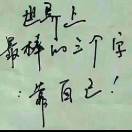 世界上
最棒的三个字
：靠自己！